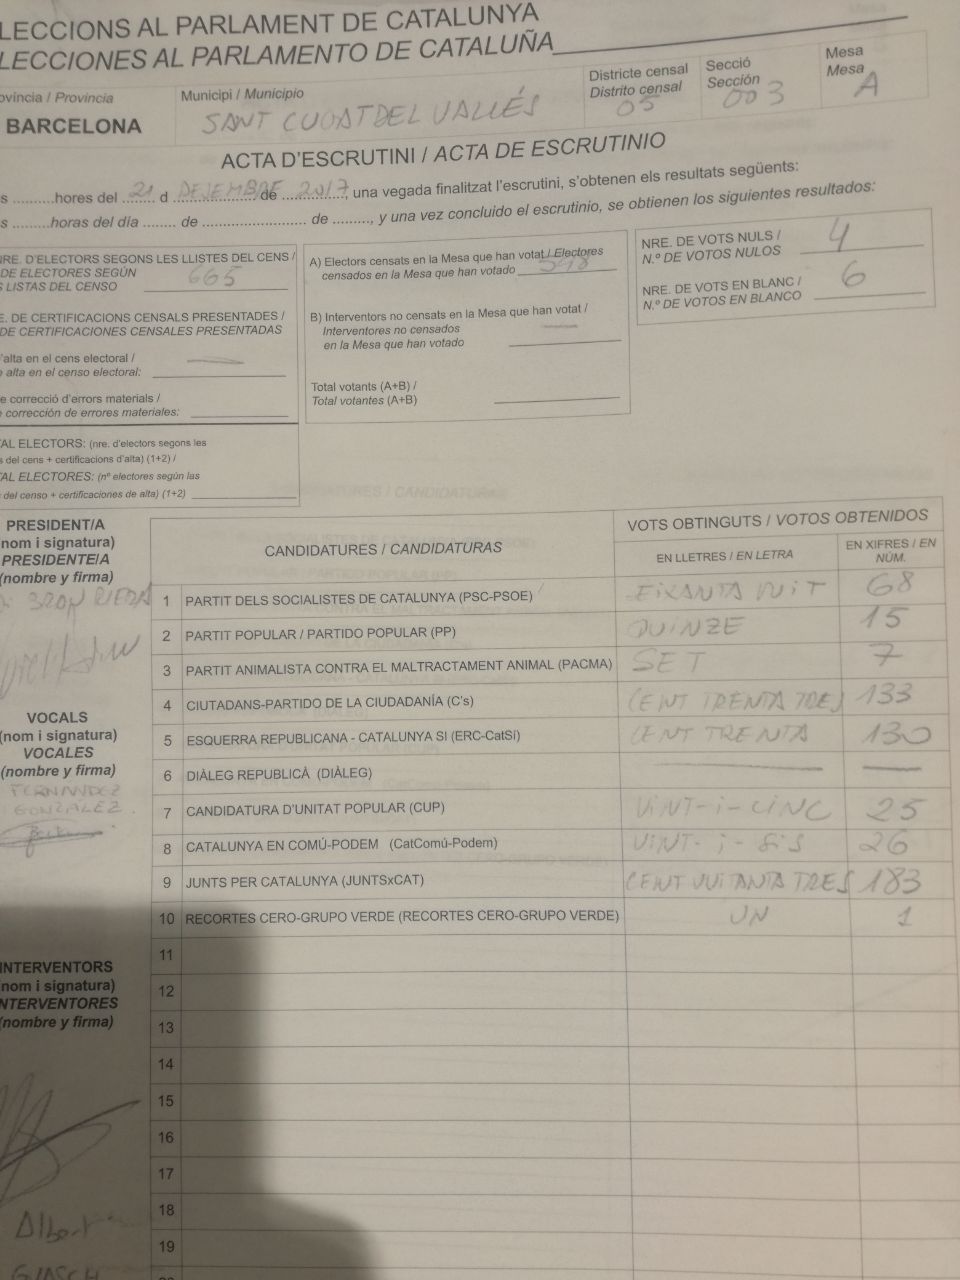 LECCIONS AL PARLAMENT DE CATALUNYA
LECCIONES AL PARLAMENTO DE CATALUÑA
ovíncia / Provincia
BARCELONA
Municipi / Municipio
SANT CUGAT DEL VALLÉS
Districte censal
Distrito censal
05
Secció
Sección
003
Mesa
Mesa
A
ACTA D'ESCRUTINI / ACTA DE ESCRUTINIO
s ..........hores del 21 d DEJEMBRE de 2017, una vegada finalitzat l'escrutini, s'obtenen els resultats següents:
s ..........horas del día ........ de ......................... de ........., y una vez concluido el escrutinio, se obtienen los siguientes resultados:
NRE. D'ELECTORS SEGONS LES LLISTES DEL CENS /
DE ELECTORES SEGÚN
S LISTAS DEL CENSO 665
E. DE CERTIFICACIONS CENSALS PRESENTADES /
DE CERTIFICACIONES CENSALES PRESENTADAS
'alta en el cens electoral /
e alta en el censo electoral:
e correcció d'errors materials /
e corrección de errores materiales:
AL ELECTORS: (nre. d'electors segons les
s del cens + certificacions d'alta) (1+2) /
AL ELECTORES: (nº electores según las
del censo + certificaciones de alta) (1+2)
A) Electors censats en la Mesa que han votat / Electores
censados en la Mesa que han votado 598
B) Interventors no censats en la Mesa que han votat /
Interventores no censados
en la Mesa que han votado
Total votants (A+B) /
Total votantes (A+B)
NRE. DE VOTS NULS /
N.º DE VOTOS NULOS 4
NRE. DE VOTS EN BLANC /
N.º DE VOTOS EN BLANCO 6
PRESIDENT/A
(nom i signatura)
PRESIDENTE/A
(nombre y firma)
VOCALS
(nom i signatura)
VOCALES
(nombre y firma)
FERNANDEZ
GONZALEZ
INTERVENTORS
(nom i signatura)
INTERVENTORES
(nombre y firma)
Albert
CANDIDATURES / CANDIDATURAS
VOTS OBTINGUTS / VOTOS OBTENIDOS
EN LLETRES / EN LETRA
EN XIFRES / EN NÚM.
1 PARTIT DELS SOCIALISTES DE CATALUNYA (PSC-PSOE) EIXANTA VUIT 68
2 PARTIT POPULAR / PARTIDO POPULAR (PP) QUINZE 15
3 PARTIT ANIMALISTA CONTRA EL MALTRACTAMENT ANIMAL (PACMA) SET 7
4 CIUTADANS-PARTIDO DE LA CIUDADANÍA (C's) CENT TRENTA TRES 133
5 ESQUERRA REPUBLICANA - CATALUNYA SI (ERC-CatSí) CENT TRENTA 130
6 DIÀLEG REPUBLICÀ (DIÀLEG)
7 CANDIDATURA D'UNITAT POPULAR (CUP) VINT-i-CINC 25
8 CATALUNYA EN COMÚ-PODEM (CatComú-Podem) VINT-i-SIS 26
9 JUNTS PER CATALUNYA (JUNTSxCAT) CENT VUITANTA TRES 183
10 RECORTES CERO-GRUPO VERDE (RECORTES CERO-GRUPO VERDE) UN 1
11
12
13
14
15
16
17
18
19